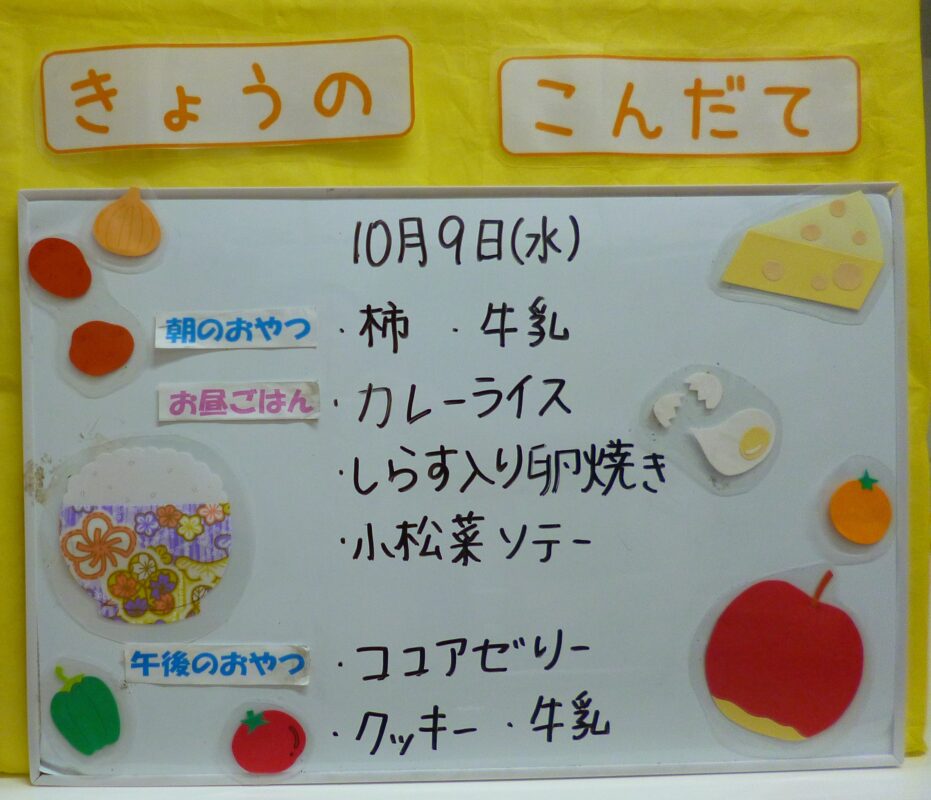 きょうの こんだて
10月9日(水)
朝のおやつ ・柿 ・牛乳
お昼ごはん ・カレーライス
・しらす入り卵焼き
・小松菜ソテー
午後のおやつ ・ココアゼリー
・クッキー ・牛乳